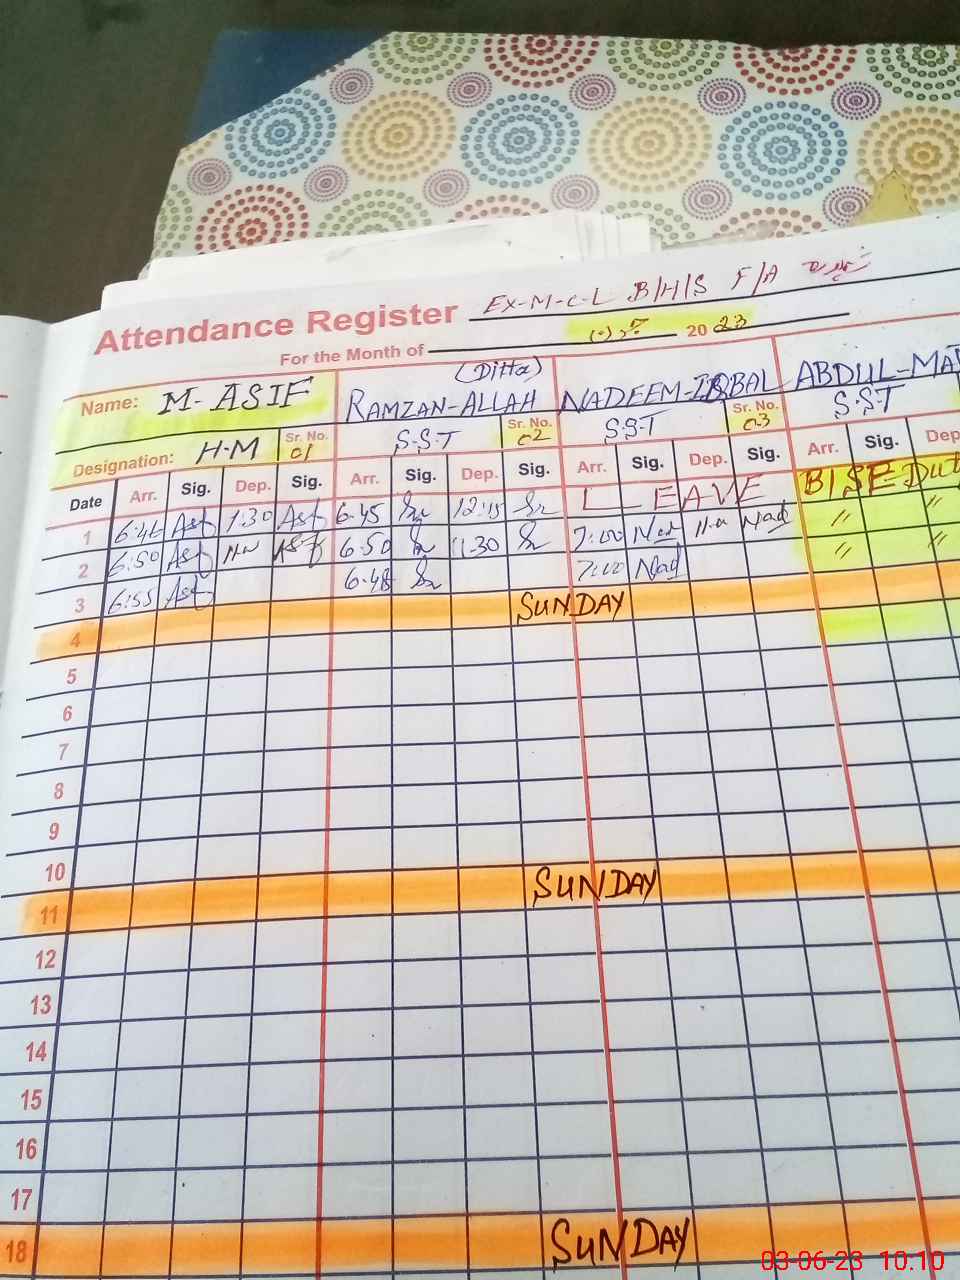 Attendance Register EX-M-C-L B/H/S F/A
For the Month of 2023
Name: M-ASIF RAMZAN-ALLAH (Ditta) NADEEM-IQBAL ABDUL-MA
Designation: H-M Sr. No. 01 S.S.T Sr. No. 02 S.S.T Sr. No. 03 S.S.T
Date Arr. Sig. Dep. Sig. Arr. Sig. Dep. Sig. Arr. Sig. Dep. Sig. Arr. Sig. Dep
1 6:46 Asf 1:30 Asf 6:45 12:15 LEAVE BISE Dut
2 6:50 Asf Asf 6:50 11:30 7:00 Nad Nad " "
3 6:55 Asf 6:48 7:00 Nad " "
4 SUNDAY
5
6
7
8
9
10
11 SUNDAY
12
13
14
15
16
17
18 SUNDAY
03-06-23 10.10